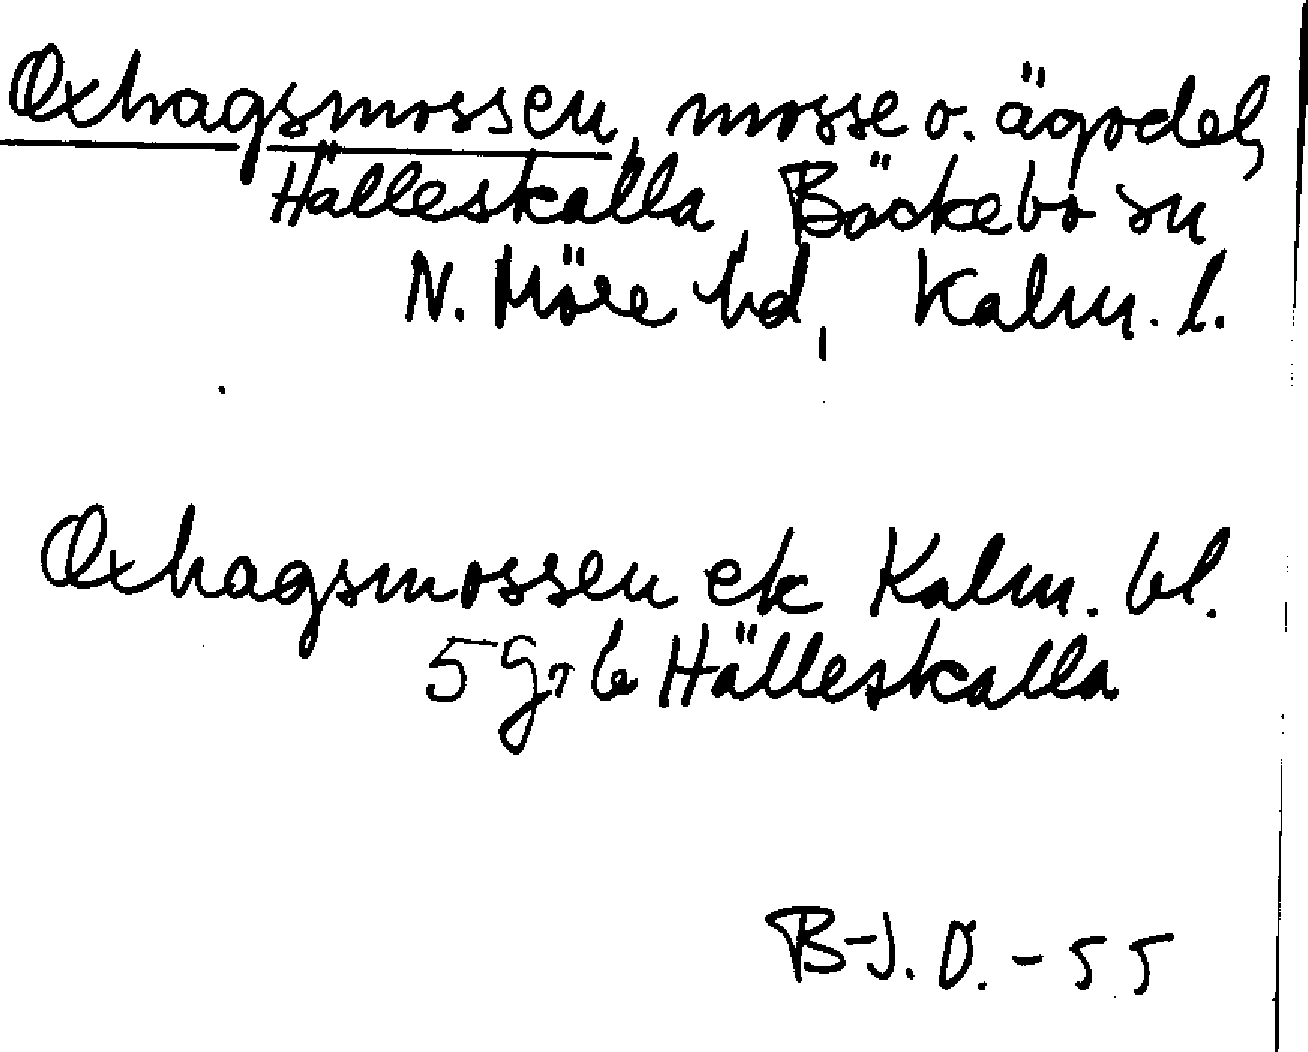 Oxhagsmossen, mosse o. ägodel,
Hälleskalla, Bäckebo sn
N. Möre hd, Kalm. l.
Oxhagsmossen ek Kalm. bl.
5 Gr b Hälleskalla
B-J. O. - 55